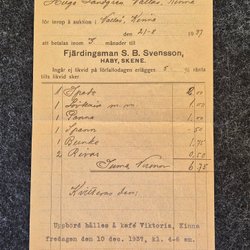 Hugo Landgren Vallås, Kinna
för inrop å auktion i Vallås, Kinna
den 21-8 1937
att betalas inom 3 månader till
Fjärdingsman S. B. Svensson,
HABY, SKENE.
Ingår ej likvid på förfallodagen erlägges 5 % ränta
tills likvid sker.
1 Spade
1 m.m.
1 Panna 1.-
1 Spann -.50
1 Bunke 1.75
2 0.50
Summa Kronor 6.75
Kvitteras den:
Uppbörd hålles å kafé Viktoria, Kinna
fredagen den 10 dec. 1937, kl. 4-6 em.